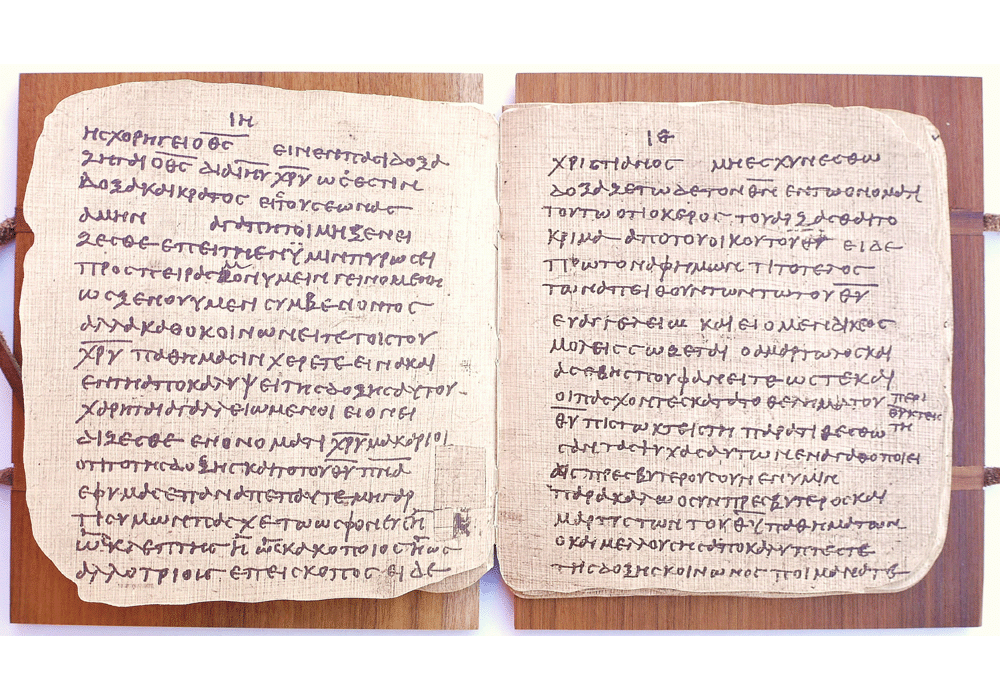 ΙΗ
ΗΣΧΟΡΗΓΕΙΟΘΣ ΕΙΝΕΝΠΑΣΙΔΟΞΑ
ΖΗΤΑΙΟΘΣ ΔΙΑΙΗΥ ΧΡΥ ΩΣΕΣΤΙΝ
ΔΟΞΑΚΑΙΚΡΑΤΟΣ ΕΙΣΤΟΥΣΕΩΝΑΣ
ΑΜΗΝ ΑΓΑΠΗΤΟΙΜΗΞΕΝΕΙ
ΖΕΣΘΕ ΕΠΕΙΤΗΕΝΥΜΙΝΠΥΡΩΣΕΙ
ΠΡΟΣΠΕΙΡΑΣΜΟΝΥΜΕΙΝΓΕΙΝΟΜΕΝΗ
ΩΣΞΕΝΟΥΥΜΕΙΝ ΣΥΜΒΕΝΟΝΤΟΣ
ΑΛΛΑΚΑΘΟΚΟΙΝΩΝΕΙΤΕΤΟΙΣΤΟΥ
ΧΡΥ ΠΑΘΗΜΑΣΙΝ ΧΕΡΕΤΕ ΕΙΝΑΚΑΙ
ΕΝΤΗΑΠΟΚΑΛΥΨΕΙΤΗΣΔΟΞΗΣΑΥΤΟΥ
ΧΑΡΗΤΑΙΑΓΑΛΛΕΙΩΜΕΝΟΙ ΕΙΟΝΕΙ
ΔΙΖΕΣΘΕ ΕΝΟΝΟΜΑΤΙ ΧΡΥ ΜΑΚΑΡΙΟΙ
ΟΤΙΤΟΤΗΣΔΟΞΗΣΚΑΙΤΟΤΟΥΘΥ ΠΝΑ
ΕΦΥΜΑΣΕΠΑΝΑΠΕΠΑΥΤΕ ΜΗΓΑΡ
ΤΙΣΥΜΩΝΠΑΣΧΕΤΩΩΣΦΟΝΕΥΣΗ
ΩΣΚΛΕΠΤΗΣ Η ΩΣΚΑΚΟΠΟΙΟΣΗΩΣ
ΑΛΛΟΤΡΙΟΙΣ ΕΠΕΙΣΚΟΠΟΣ ΕΙΔΕ
ΙΘ
ΧΡΙΣΤΙΑΝΟΣ ΜΗΕΣΧΥΝΕΣΘΩ
ΔΟΞΑΖΕΤΩΔΕΤΟΝΘΝ ΕΝΤΩΟΝΟΜΑΤΙ
ΤΟΥΤΩ ΟΤΙΟΚΕΡΟΣ ΤΟΥΑΡΞΑΣΘΑΙΤΟ
ΚΡΙΜΑ ΑΠΟΤΟΥΟΙΚΟΥΤΟΥΘΥ ΕΙΔΕ
ΠΡΩΤΟΝΑΦΗΜΩΝ ΤΙΤΟΤΕΛΟΣ
ΤΩΝΑΠΕΙΘΟΥΝΤΩΝΤΩΤΟΥΘΥ
ΕΥΑΓΓΕΛΕΙΩ ΚΑΙΕΙΟΜΕΝΔΙΚΕΟΣ
ΜΟΛΕΙΣΣΩΖΕΤΑΙ ΟΑΜΑΡΤΩΛΟΣΚΑΙ
ΑΣΕΒΗΣΠΟΥΦΑΝΕΙΤΕ ΩΣΤΕΚΑΙ
ΟΙΠΑΣΧΟΝΤΕΣΚΑΤΑΤΟΘΕΛΗΜΑΤΟΥ
ΘΥ ΠΙΣΤΩΚΤΕΙΣΤΗ ΠΑΡΑΤΙΘΕΣΘΩ
ΣΑΝΤΑΣΨΥΧΑΣΑΥΤΩΝΕΝΑΓΑΘΟΠΟΙΕΙ
ΠΕΡΙ
ΘΥΚΤΕΙΣ
ΤΗ
ΑΙΣ ΠΡΕΣΒΥΤΕΡΟΥΣΟΥΝΕΝΥΜΙΝ
ΠΑΡΑΚΑΛΩ ΟΣΥΝΠΡΕΣΒΥΤΕΡΟΣΚΑΙ
ΜΑΡΤΥΣΤΩΝ ΤΟΥΘΥ ΠΑΘΗΜΑΤΩΝ
ΟΚΑΙΜΕΛΛΟΥΣΗΣΑΠΟΚΑΛΥΠΤΕΣΤΕ
ΤΗΣΔΟΞΗΣΚΟΙΝΩΝΟΣ ΠΟΙΜΑΝΑΤΕ